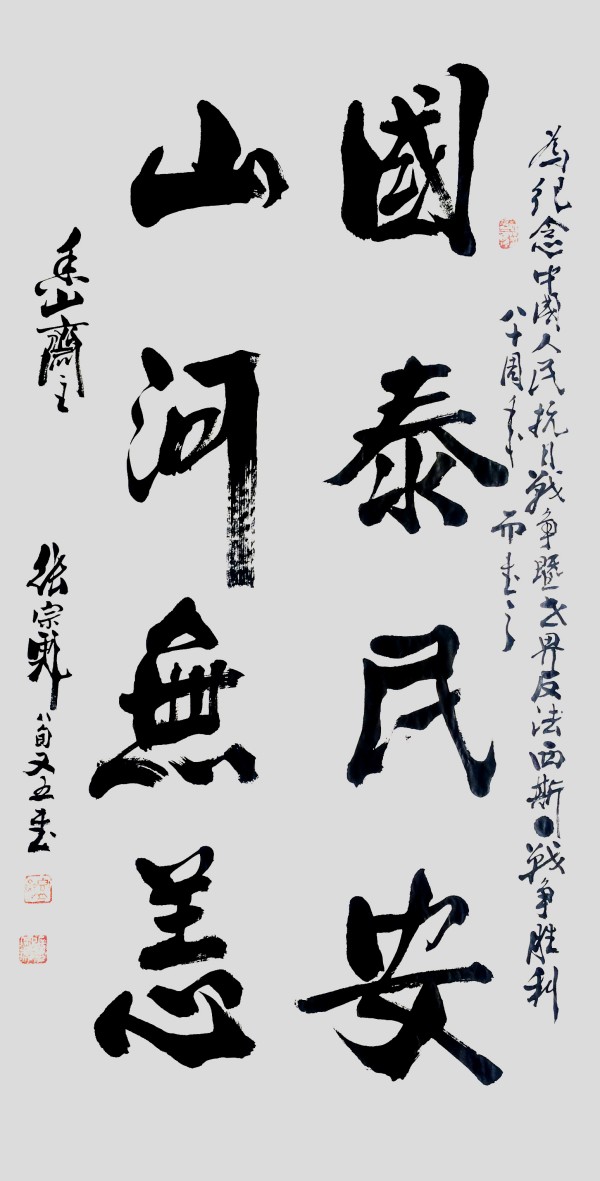 為纪念中國人民抗日戰争暨世界反法西斯戰争胜利
八十周年而書之
國泰民安
山河無恙
山齋主
張宗 八旬又五書